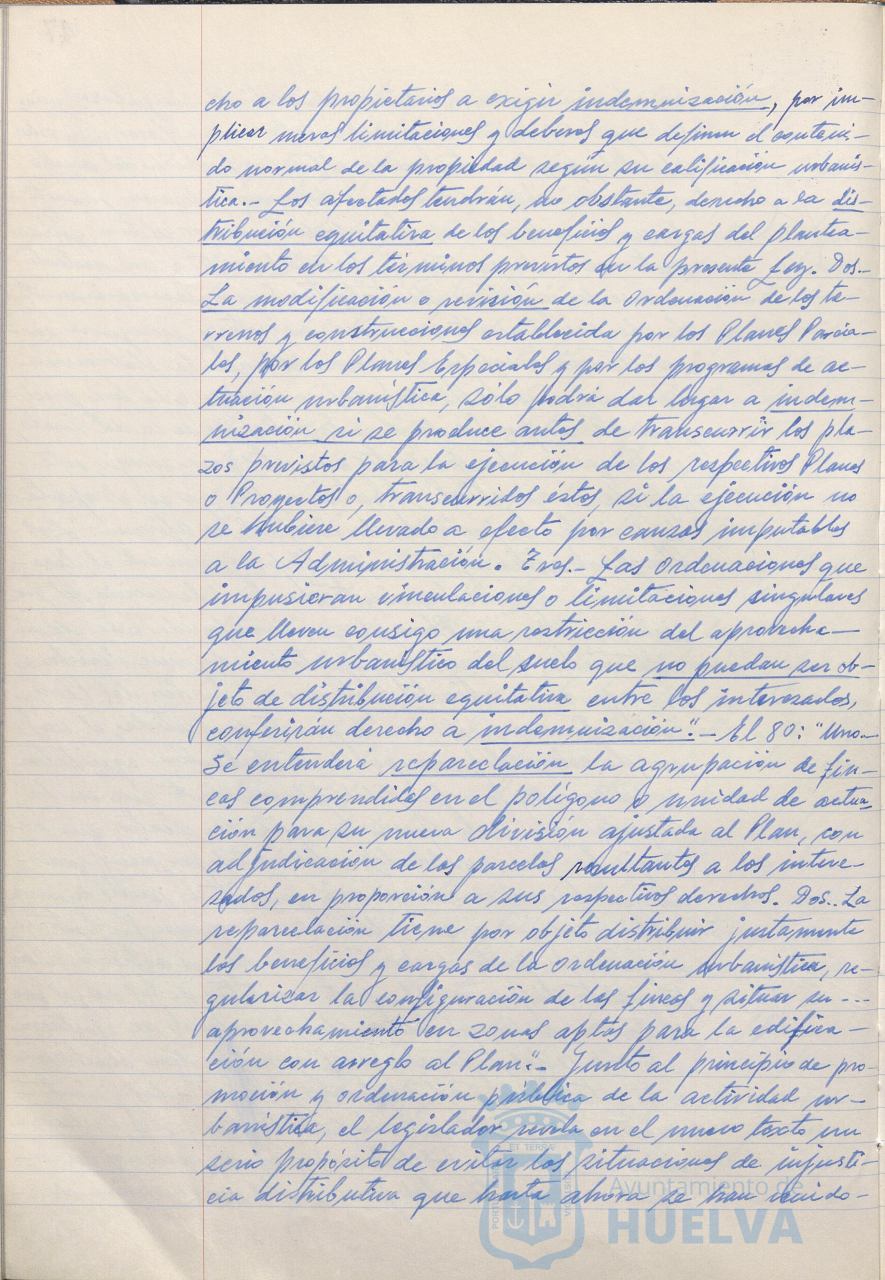 cho a los propietarios a exigir indemnización, por im-
plicar meras limitaciones y deberes que definen el conteni-
do normal de la propiedad según su calificación urbanís-
tica.- Los afectados tendrán, no obstante, derecho a la dis-
tribución equitativa de los beneficios y cargas del planea-
miento en los términos previstos en la presente Ley. Dos.-
La modificación o revisión de la ordenación de los te-
rrenos y construcciones establecida por los Planes Parcia-
les, por los Planes Especiales y por los programas de ac-
tuación urbanística, sólo podrá dar lugar a indem-
nización si se produce antes de transcurrir los pla-
zos previstos para la ejecución de los respectivos Planes
o Proyectos o, transcurridos éstos, si la ejecución no
se hubiere llevado a efecto por causas imputables
a la Administración. Tres.- Las ordenaciones que
impusieran vinculaciones o limitaciones singulares
que lleven consigo una restricción del aprovecha-
miento urbanístico del suelo que no puedan ser ob-
jeto de distribución equitativa entre los interesados,
conferirán derecho a indemnización".- El 80: "Uno.-
Se entenderá reparcelación la agrupación de fin-
cas comprendidas en el polígono o unidad de actua-
ción para su nueva división ajustada al Plan, con
adjudicación de las parcelas resultantes a los intere-
sados, en proporción a sus respectivos derechos. Dos.. La
reparcelación tiene por objeto distribuir justamente
los beneficios y cargas de la ordenación urbanística, re-
gularizar la configuración de las fincas y situar su ---
aprovechamiento en zonas aptas para la edifica-
ción con arreglo al Plan".- Junto al principio de pro-
moción y ordenación pública de la actividad ur-
banística, el legislador revela en el nuevo texto un
serio propósito de evitar las situaciones de injusti-
cia distributiva que hasta ahora se han venido-
Ayuntamiento de
HUELVA